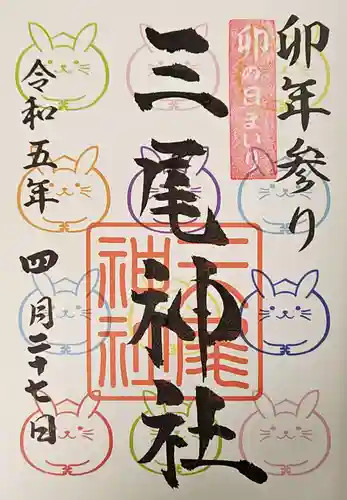 卯年参り
卯の日まいり
三尾神社
三尾神社
令和五年
四月二十七日